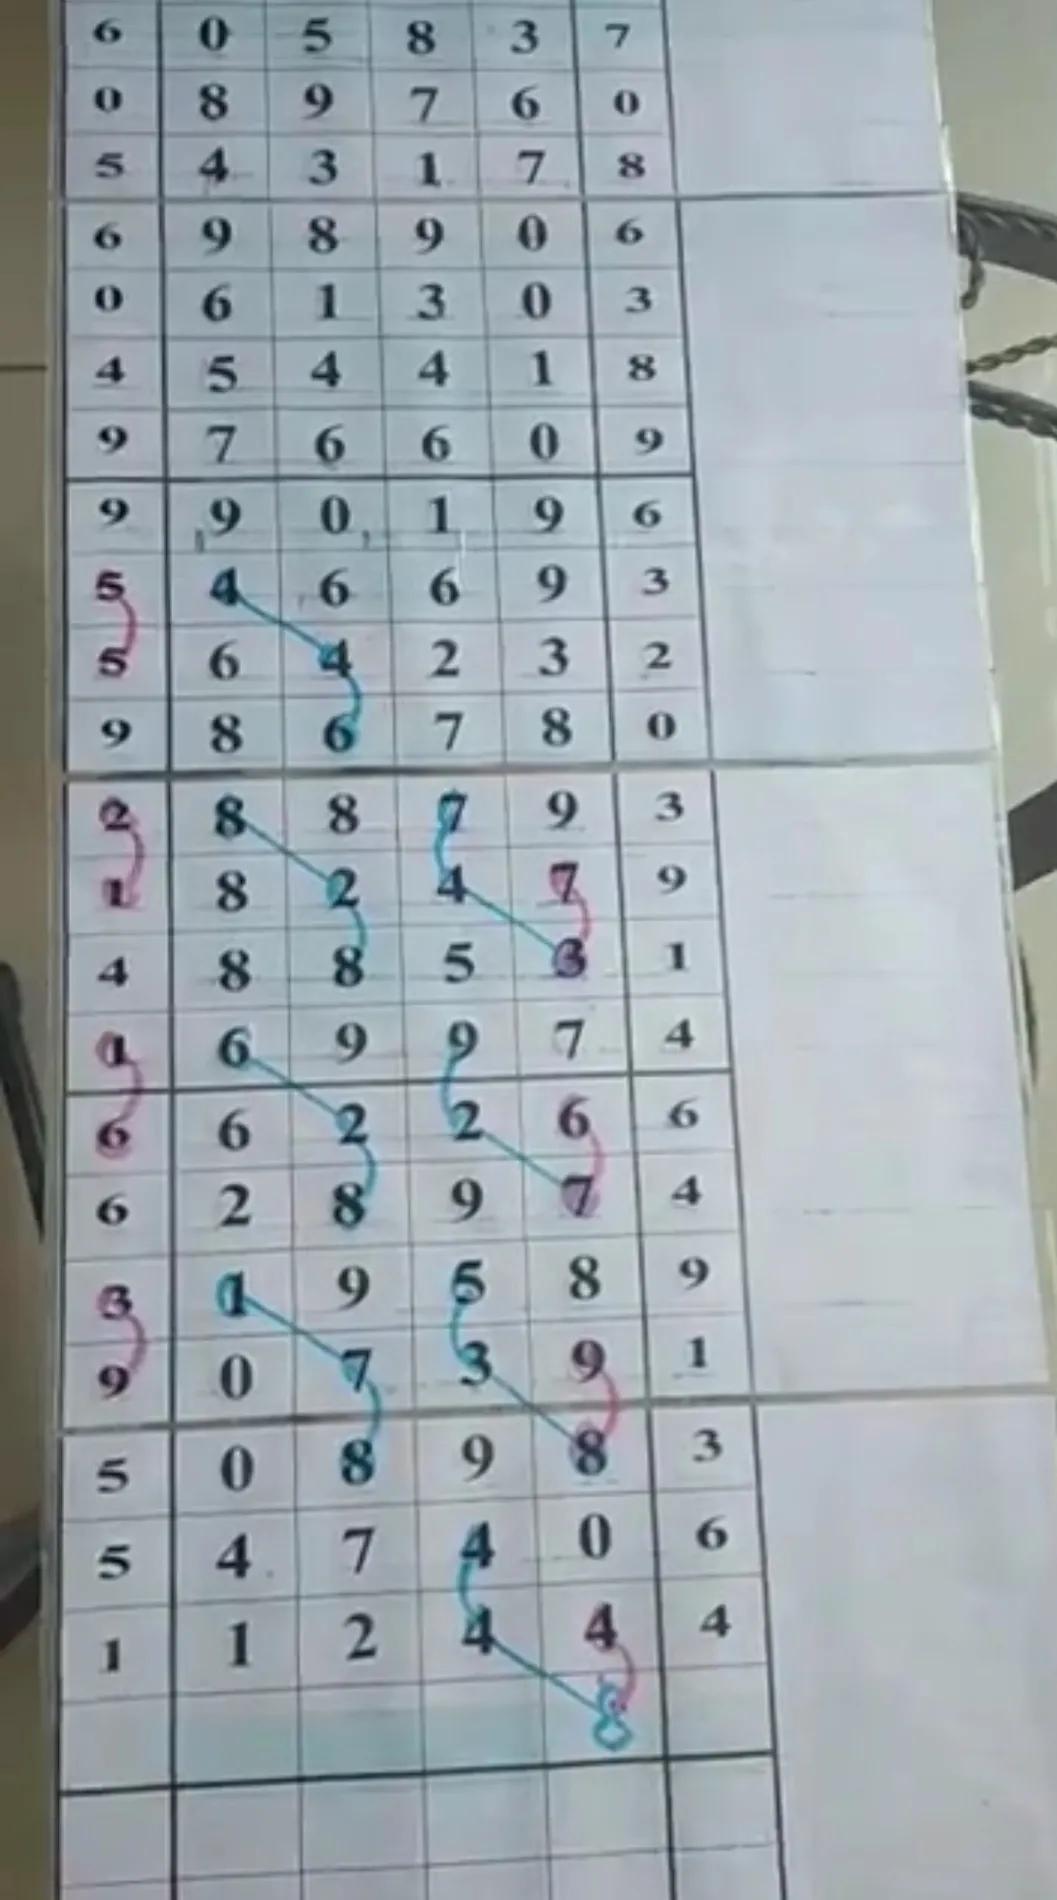 6 0 5 8 3 7
0 8 9 7 6 0
5 4 3 1 7 8
6 9 8 9 0 6
0 6 1 3 0 3
4 5 4 4 1 8
9 7 6 6 0 9
9 9 0 1 9 6
5 4 6 6 9 3
5 6 4 2 3 2
9 8 6 7 8 0
2 8 8 7 9 3
1 8 2 4 7 9
4 8 8 5 3 1
1 6 9 9 7 4
6 6 2 2 6 6
6 2 8 9 7 4
3 1 9 5 8 9
9 0 7 3 9 1
5 0 8 9 8 3
5 4 7 4 0 6
1 1 2 4 4 4
8